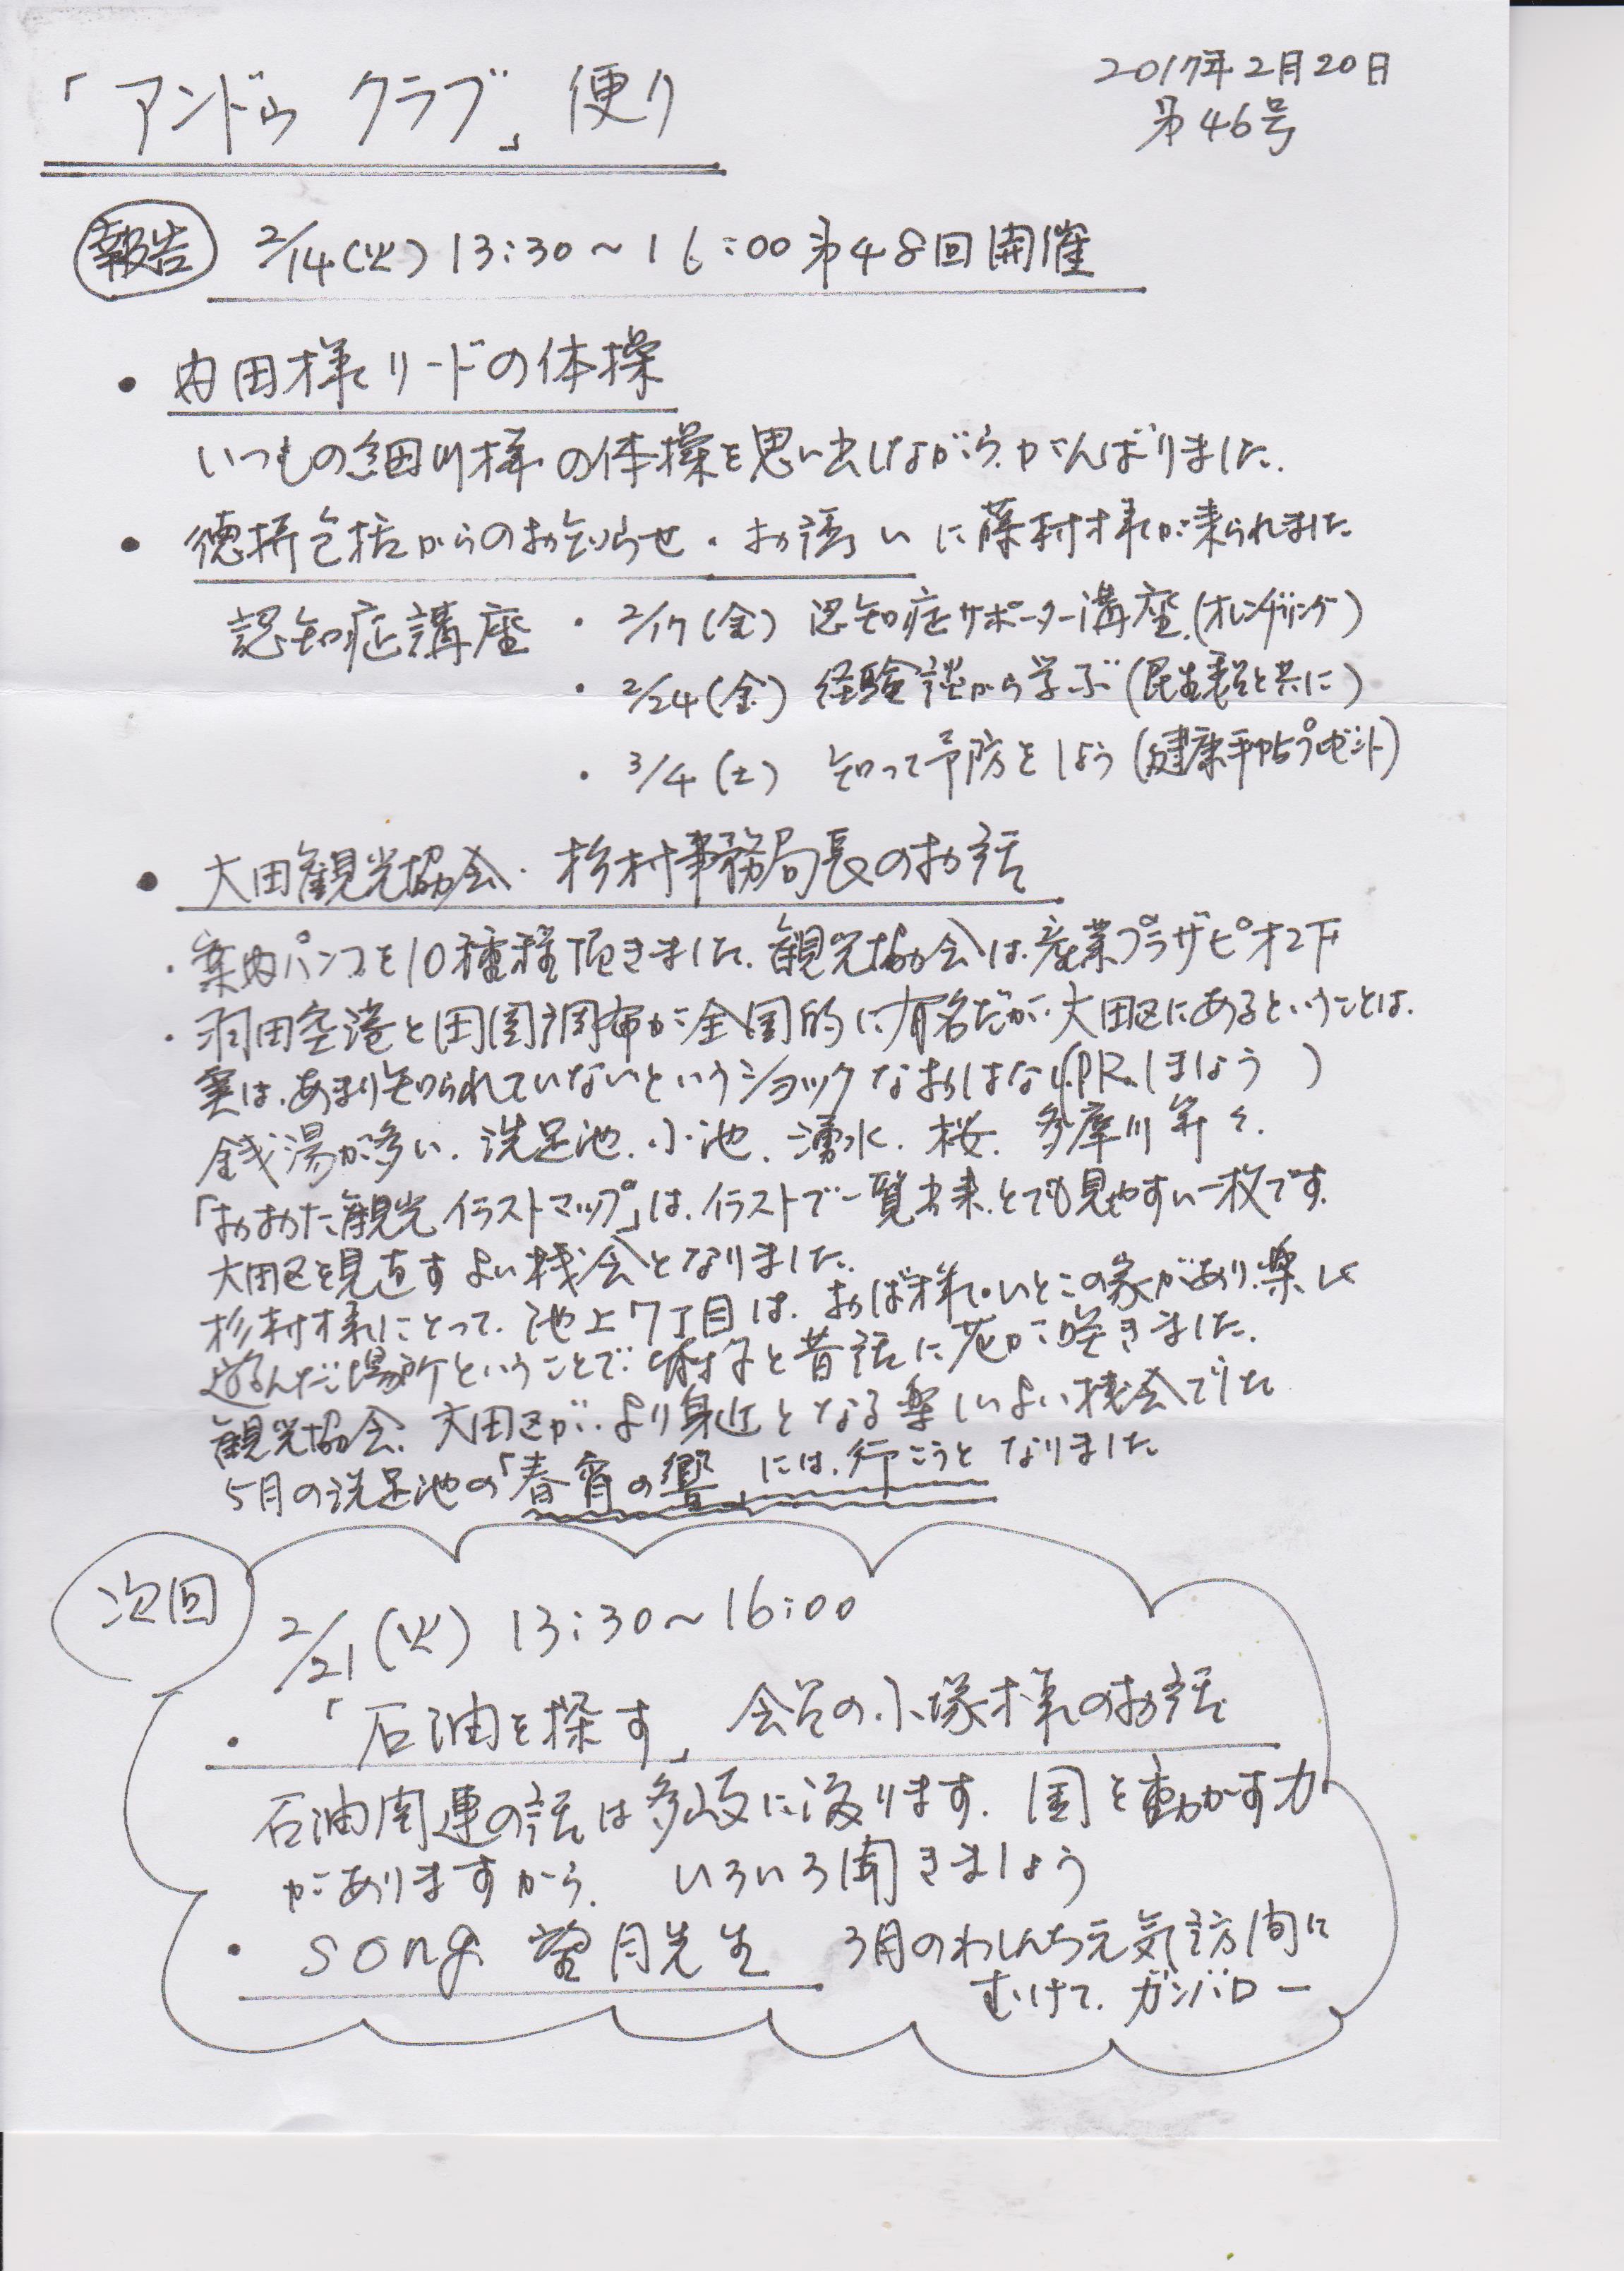 「アンドゥ クラブ」便り
2017年2月20日
第46号
報告 2/14(火) 13:30～16:00 第48回開催
・内田様リードの体操
いつもの細川様の体操を思い出しながら、がんばりました.
・徳持包括からのお知らせ・お誘い に藤村様が来られました
認知症講座 ・2/17(金) 認知症サポーター講座.(オレンジリング)
・2/24(金) 経験談から学ぶ (民生委員と共に)
・3/4(土) 知って予防をしよう (健康手帖プレゼント)
・大田観光協会・杉村事務局長のお話
・案内パンフを10種種頂きました. 観光協会は.産業プラザピオ2F
・羽田空港と田園調布が全国的に有名だが、大田区にあるということは.
実は、あまり知られていないというショックなおはなし.(PR.しましょう )
銭湯が多い. 洗足池. 小池. 湧水. 桜. 多摩川 等々.
「おおた観光イラストマップ」は.イラストで一覧出来.とても見やすい一枚です.
大田区を見直すよい機会となりました.
杉村様にとって. 池上7丁目は. おば様・いとこの家があり.楽しく
遊んだ場所ということで. と昔話に花が咲きました.
観光協会、大田区が、より身近となる楽しいよい機会でした
5月の洗足池の「春宵の響」には、行こうと なりました
次回
2/21(火) 13:30～16:00
・「石油を探す」 会員の小塚様のお話
石油関連の話は多岐に渡ります. 国を動かす力
がありますから. いろいろ聞きましょう
・song 望月先生 3月のわしんち元気訪問に
むけて. ガンバロー